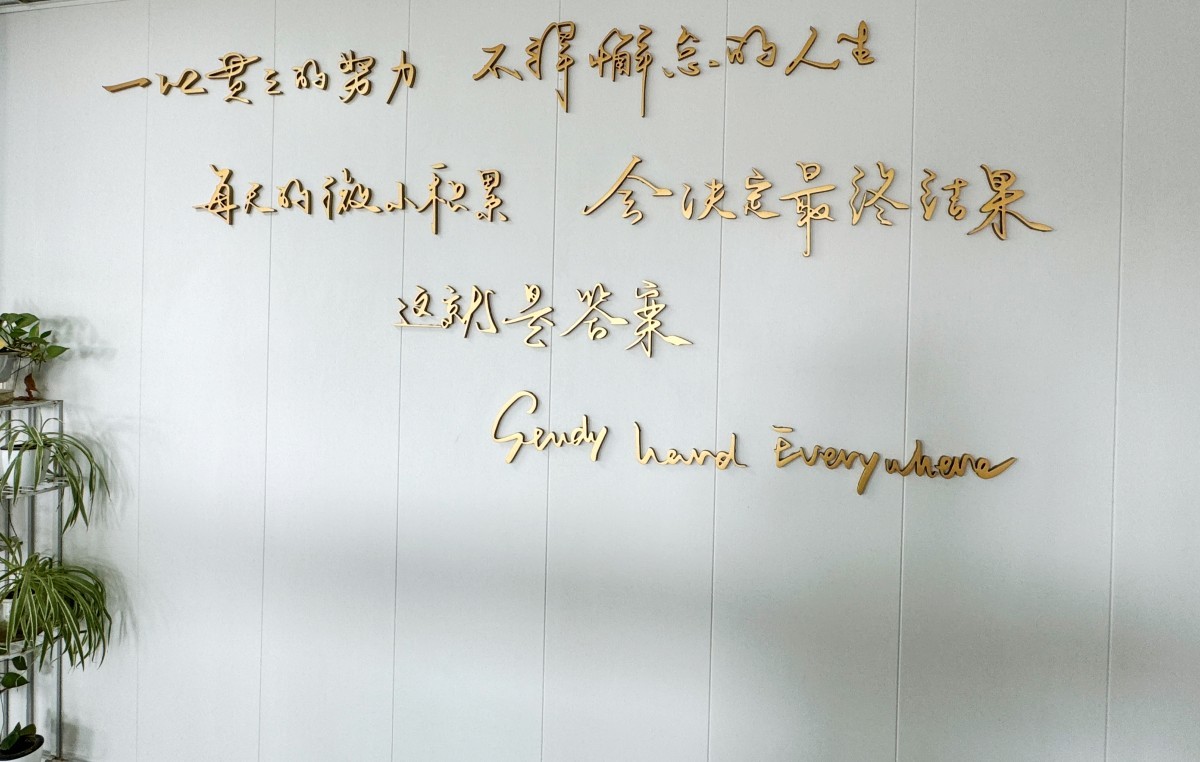 一以贯之的努力 不得懈怠的人生
每天的微小积累 会决定最终结果
这就是答案
Study hard Everywhere